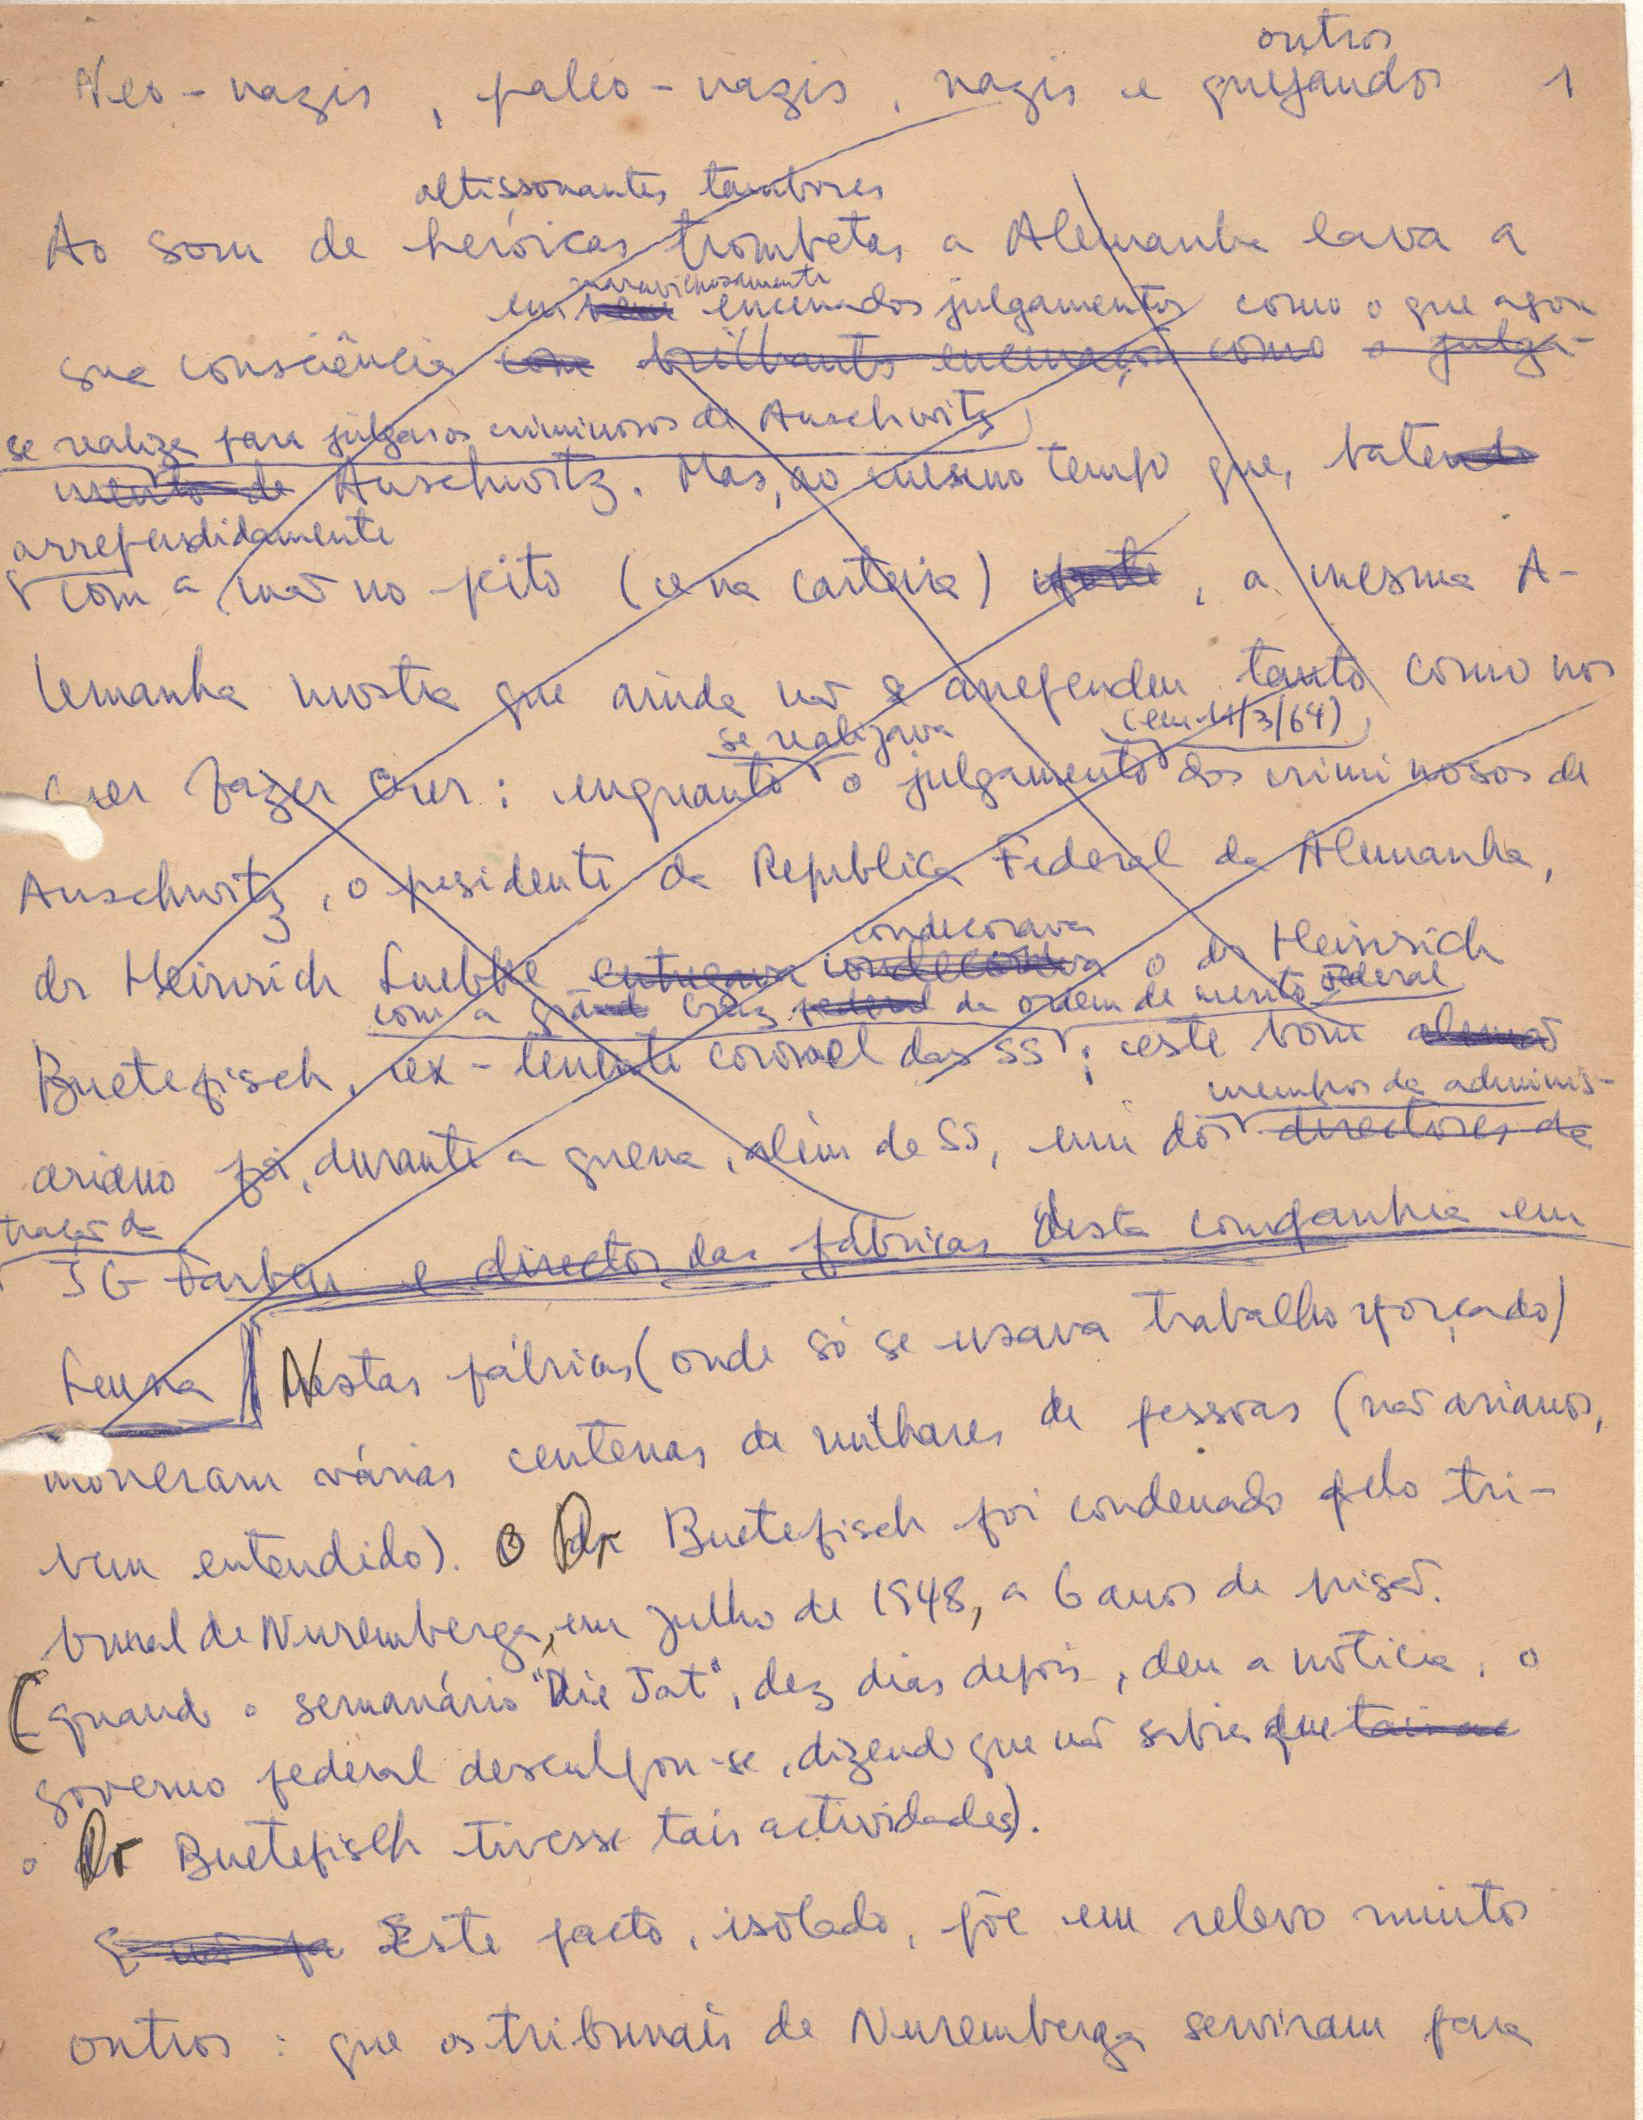 outros
Neo-nazis, paleo-nazis, nazis e quejandos 1
altissonantes tambores
Ao som de heróicas trombetas a Alemanha lava a
em bem maravilhosamente encenados julgamentos como o que agora
sua consciência com brilhantes encenações como o julga-
se realiza para julgar os criminosos de Auschwitz
mento de Auschwitz. Mas, ao mesmo tempo que, batendo
arrependidamente
com a mão no peito (e na carteira), a mesma A-
lemanha mostra que ainda não se arrependeu tanto como nos
se realizava (em 11/3/64)
quer fazer crer: enquanto o julgamento dos criminosos de
Auschwitz, o presidente da Republica Federal da Alemanha,
condecorava
dr Heinrich Luebke entregava condecorava o dr Heinrich
com a grande cruz federal da ordem de merito federal
Buetefisch, ex-tenente coronel das SS; este bom alemão
membros da adminis-
ariano foi, durante a guerra, além de SS, um dos directores da
tração da
IG Farben e director das fábricas desta companhia em
Leuna Nestas fábricas (onde só se usava trabalho forçado)
morreram várias centenas de milhares de pessoas (não arianos,
bem entendido). O Dr Buetefisch foi condenado pelo tri-
bunal de Nuremberga, em julho de 1948, a 6 anos de prisão.
(quando o semanário "Die Tat", dez dias depois, deu a noticia, o
governo federal desculpou-se, dizendo que não sabia que
o Dr Buetefisch tivesse tais actividades).
E não Este facto, isolado, põe em relevo muitos
outros: que os tribunais de Nuremberga serviram para